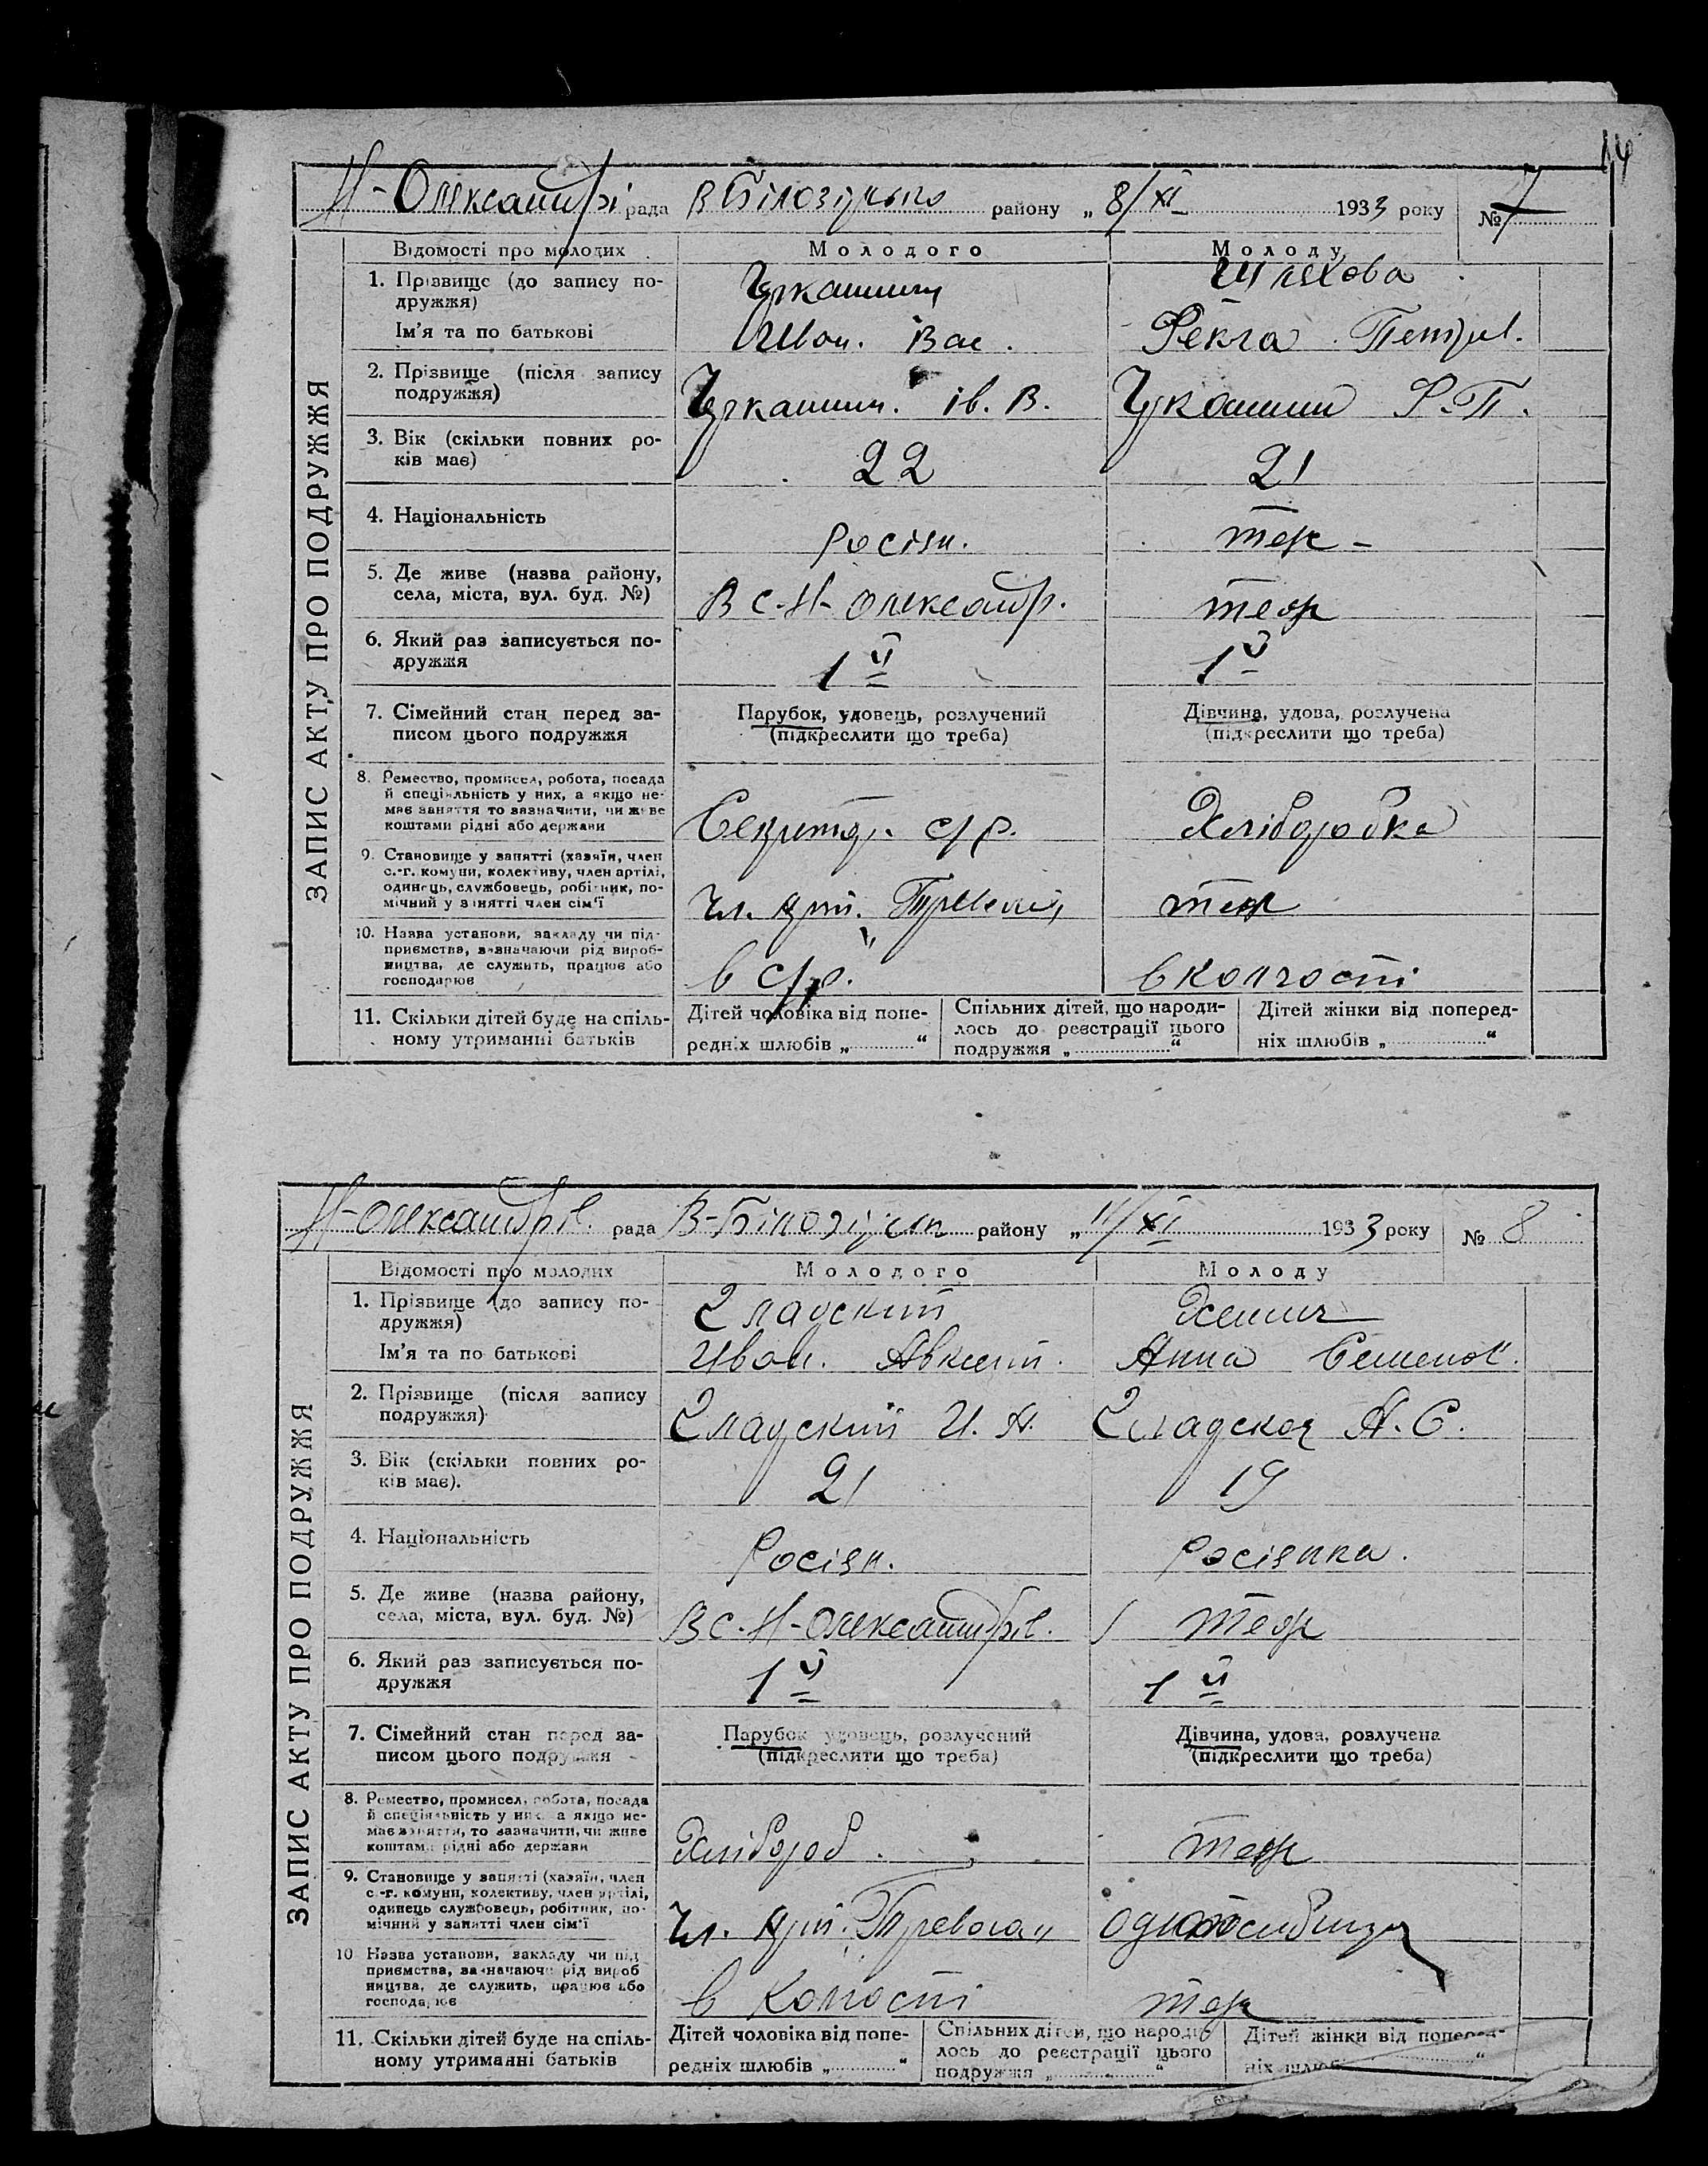 14
Н-Олександрі рада В Білозірько району „ 8/XI 1933 року № 7
ЗАПИС АКТУ ПРО ПОДРУЖЖЯ
Відомості про молодих Молодого Молоду
1. Прізвище (до запису по-
дружжя)
Ім'я та по батькові
Иван. Вас. Фекла Петрив.
2. Прізвище (після запису
подружжя)
ів. В. Ф. П.
3. Вік (скільки повних ро-
ків має)
22 21
4. Національність
Росіян. теж -
5. Де живе (назва району,
села, міста, вул. буд. №)
В с. Н- Олександр. теж
6. Який раз записується по-
дружжя
1й 1й
7. Сімейний стан перед за-
писом цього подружжя
Парубок, удовець, розлучений
(підкреслити що треба)
Дівчина, удова, розлучена
(підкреслити що треба)
8. Ремество, промисел, робота, посада
й спеціяльність у них, а якщо не-
має заняття то зазначити, чи живе
коштами рідні або держави
с/р. Хліборобка
9. Становище у занятті (хазяїн, член
с.-г. комуни, колективу, член артілі,
одинець, службовець, робітник, по-
мічний у занятті член сім'ї
Чл. арт. теж
10. Назва установи, закладу чи під-
приємства, зазначаючи рід вироб-
ництва, де служить, працює або
господарює
в с/р. в колгоспі
11. Скільки дітей буде на спіль-
ному утриманні батьків
Дітей чоловіка від попе-
редніх шлюбів „ “
Спільних дітей, що народи-
лось до реєстрації цього
подружжя „ “
Дітей жінки від поперед-
ніх шлюбів „ “
Н-Олександрів. рада В-Білозірк району „ 11/XI 1933 року № 8
ЗАПИС АКТУ ПРО ПОДРУЖЖЯ
Відомості про молодих Молодого Молоду
1. Прізвище (до запису по-
дружжя)
Гладский
Ім'я та по батькові
Иван. Авксент. Анна Семенов.
2. Прізвище (після запису
подружжя)
Гладский И. А. Гладская А. С.
3. Вік (скільки повних ро-
ків має).
21 19
4. Національність
Росіян. Росіянка.
5. Де живе (назва району,
села, міста, вул. буд. №)
В с. Н-Олександрів. теж
6. Який раз записується по-
дружжя
1й 1й
7. Сімейний стан перед за-
писом цього подружжя
Парубок удовець, розлучений
(підкреслити що треба)
Дівчина, удова, розлучена
(підкреслити що треба)
8. Ремество, промисел, робота, посада
й спеціяльність у них а якщо не-
має заняття, то зазначити, чи живе
коштами рідні або держави
Хлібороб. теж
9. Становище у занятті (хазяїн, член
с.-г. комуни, колективу, член артілі,
одинець службовець, робітник, по-
мічний у занятті член сім'ї
Чл. арт.
10 Назва установи, закладу чи під
приємства, зазначаючи рід вироб
ництва, де служить, працює або
господарює
в колгоспі теж
11. Скільки дітей буде на спіль-
ному утриманні батьків
Дітей чоловіка від попе-
редніх шлюбів „ “
Спільних дітей, що народи
лось до реєстрації цього
подружжя „ “
Дітей жінки від поперед-
ніх шлюб “